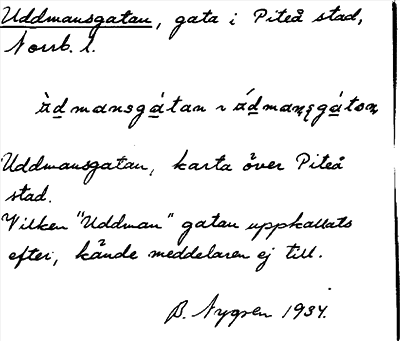 Uddmansgatan, gata i Piteå stad,
Norrb. l.
Uddmansgatan, karta över Piteå
stad.
Vilken "Uddman" gatan uppkallats
efter, kände meddelaren ej till.
B. Nygren 1934.